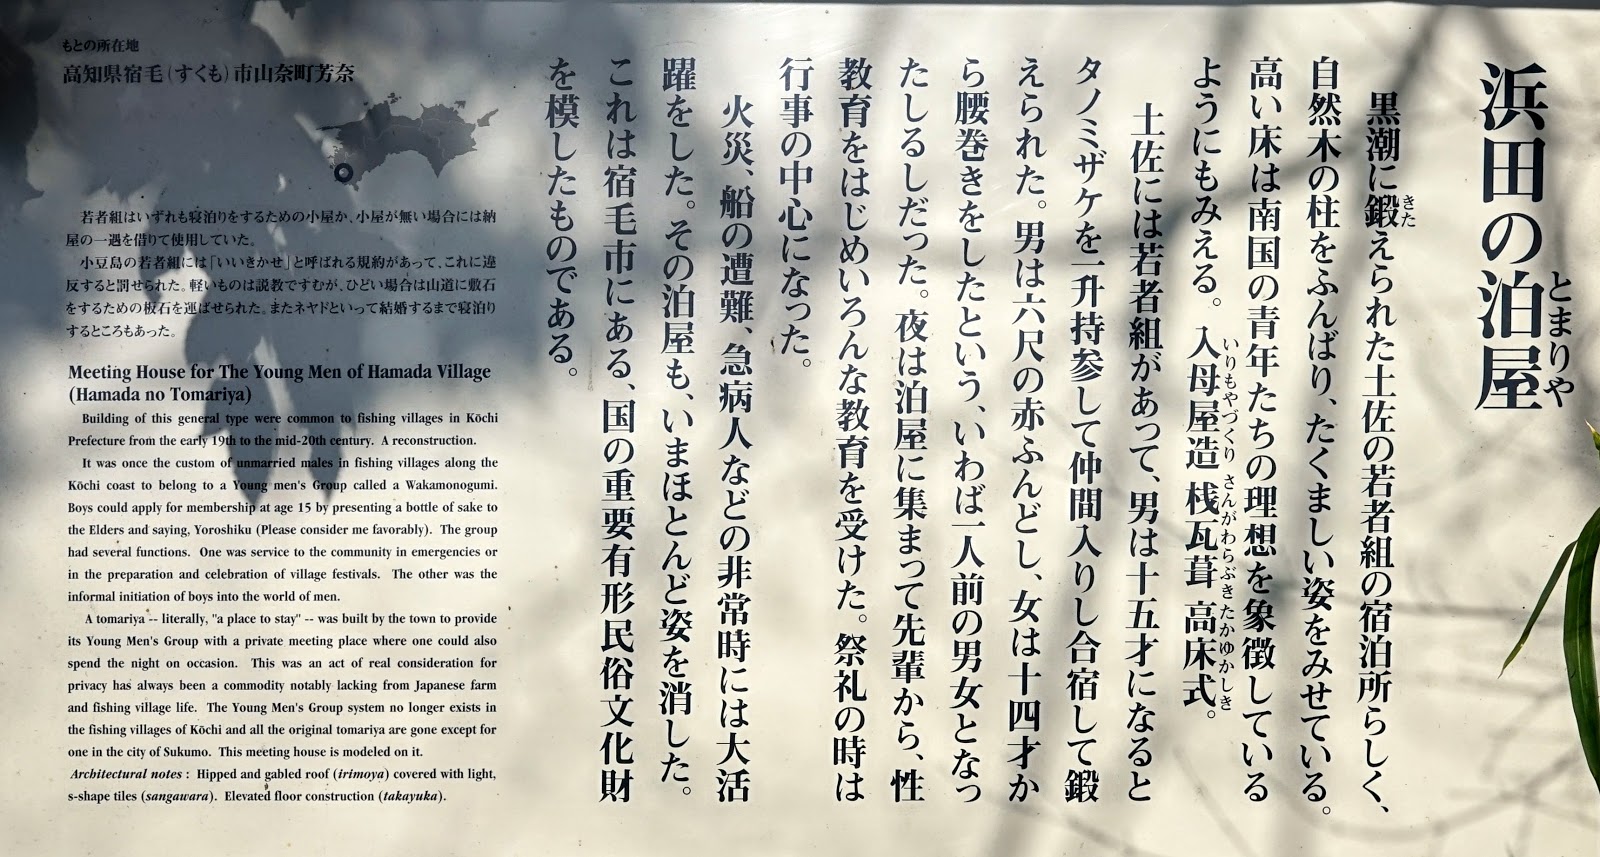 浜田の泊屋
とまりや
黒潮に鍛えられた土佐の若者組の宿泊所らしく、
きた
自然木の柱をふんばり、たくましい姿をみせている。
高い床は南国の青年たちの理想を象徴している
ようにもみえる。入母屋造 桟瓦葺 高床式。
いりもやづくり さんがわらぶき たかゆかしき
土佐には若者組があって、男は十五才になると
タノミザケを一升持参して仲間入りし合宿して鍛
えられた。男は六尺の赤ふんどし、女は十四才か
ら腰巻きをしたという、いわば一人前の男女となっ
たしるしだった。夜は泊屋に集まって先輩から、性
教育をはじめいろんな教育を受けた。祭礼の時は
行事の中心になった。
火災、船の遭難、急病人などの非常時には大活
躍をした。その泊屋も、いまほとんど姿を消した。
これは宿毛市にある、国の重要有形民俗文化財
を模したものである。
もとの所在地
高知県宿毛(すくも)市山奈町芳奈
若者組はいずれも寝泊りをするための小屋か、小屋が無い場合には納
屋の一遇を借りて使用していた。
小豆島の若者組には「いいきかせ」と呼ばれる規約があって、これに違
反すると罰せられた。軽いものは説教ですむが、ひどい場合は山道に敷石
をするための板石を運ばせられた。またネヤドといって結婚するまで寝泊り
するところもあった。
Meeting House for The Young Men of Hamada Village
(Hamada no Tomariya)
Building of this general type were common to fishing villages in Kōchi
Prefecture from the early 19th to the mid-20th century. A reconstruction.
It was once the custom of unmarried males in fishing villages along the
Kōchi coast to belong to a Young men's Group called a Wakamonogumi.
Boys could apply for membership at age 15 by presenting a bottle of sake to
the Elders and saying, Yoroshiku (Please consider me favorably). The group
had several functions. One was service to the community in emergencies or
in the preparation and celebration of village festivals. The other was the
informal initiation of boys into the world of men.
A tomariya -- literally, "a place to stay" -- was built by the town to provide
its Young Men's Group with a private meeting place where one could also
spend the night on occasion. This was an act of real consideration for
privacy has always been a commodity notably lacking from Japanese farm
and fishing village life. The Young Men's Group system no longer exists in
the fishing villages of Kōchi and all the original tomariya are gone except for
one in the city of Sukumo. This meeting house is modeled on it.
Architectural notes : Hipped and gabled roof (irimoya) covered with light,
s-shape tiles (sangawara). Elevated floor construction (takayuka).